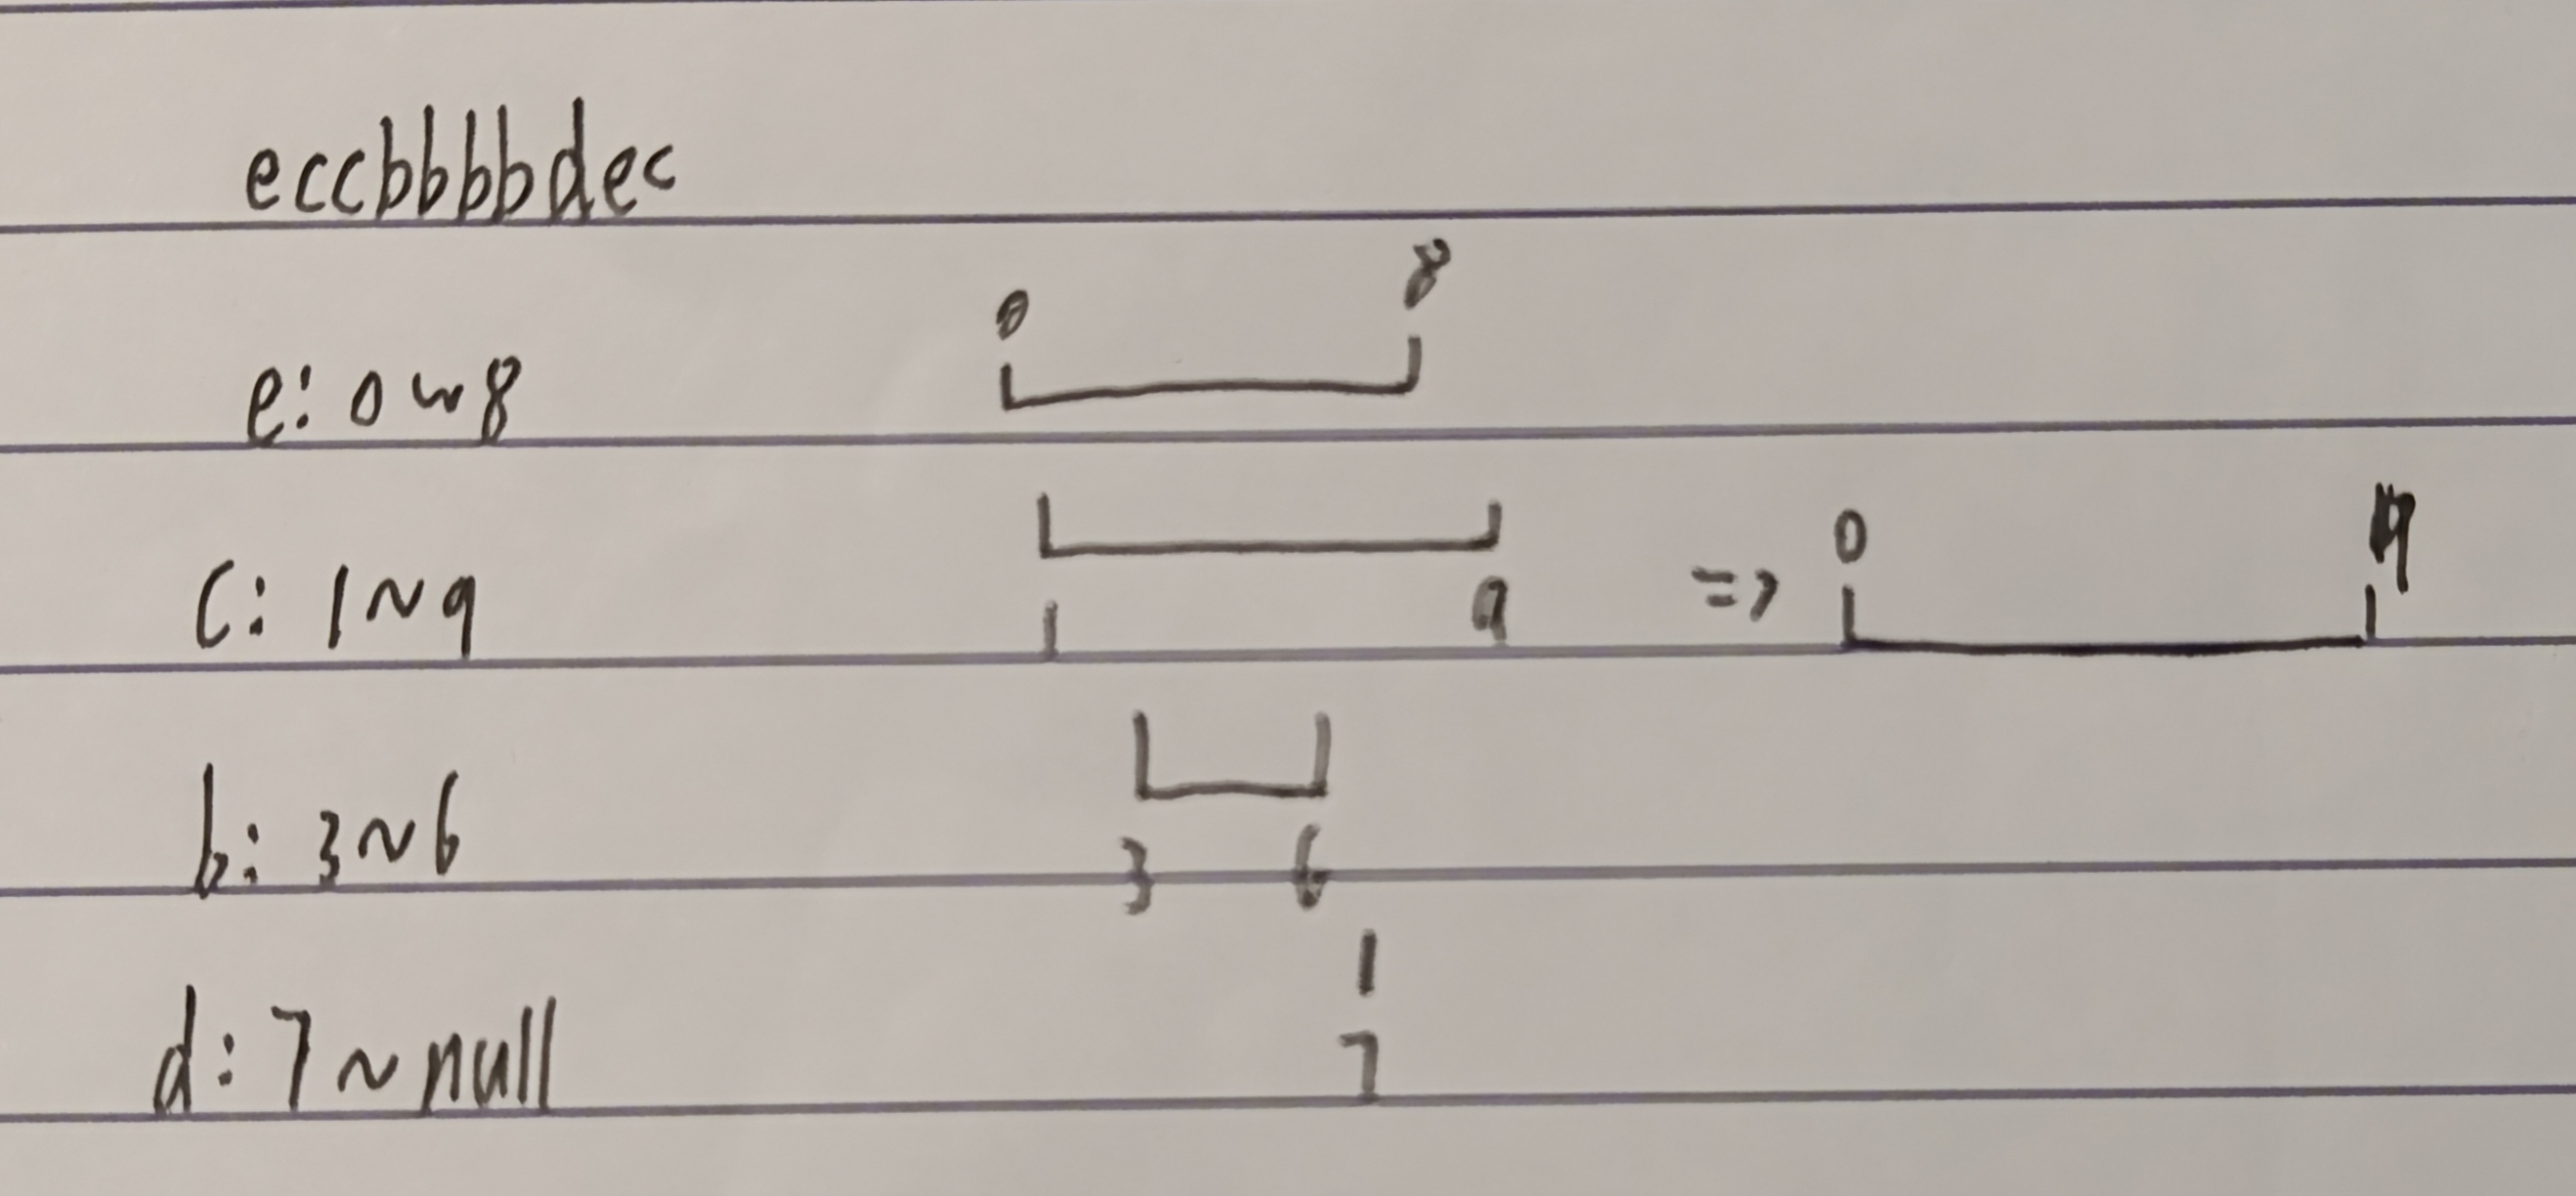 eccbbbbdec
0 8
e: 0~8
c: 1~9
1 9 => 0 9
b: 3~6
3 6
d: 7~null
7